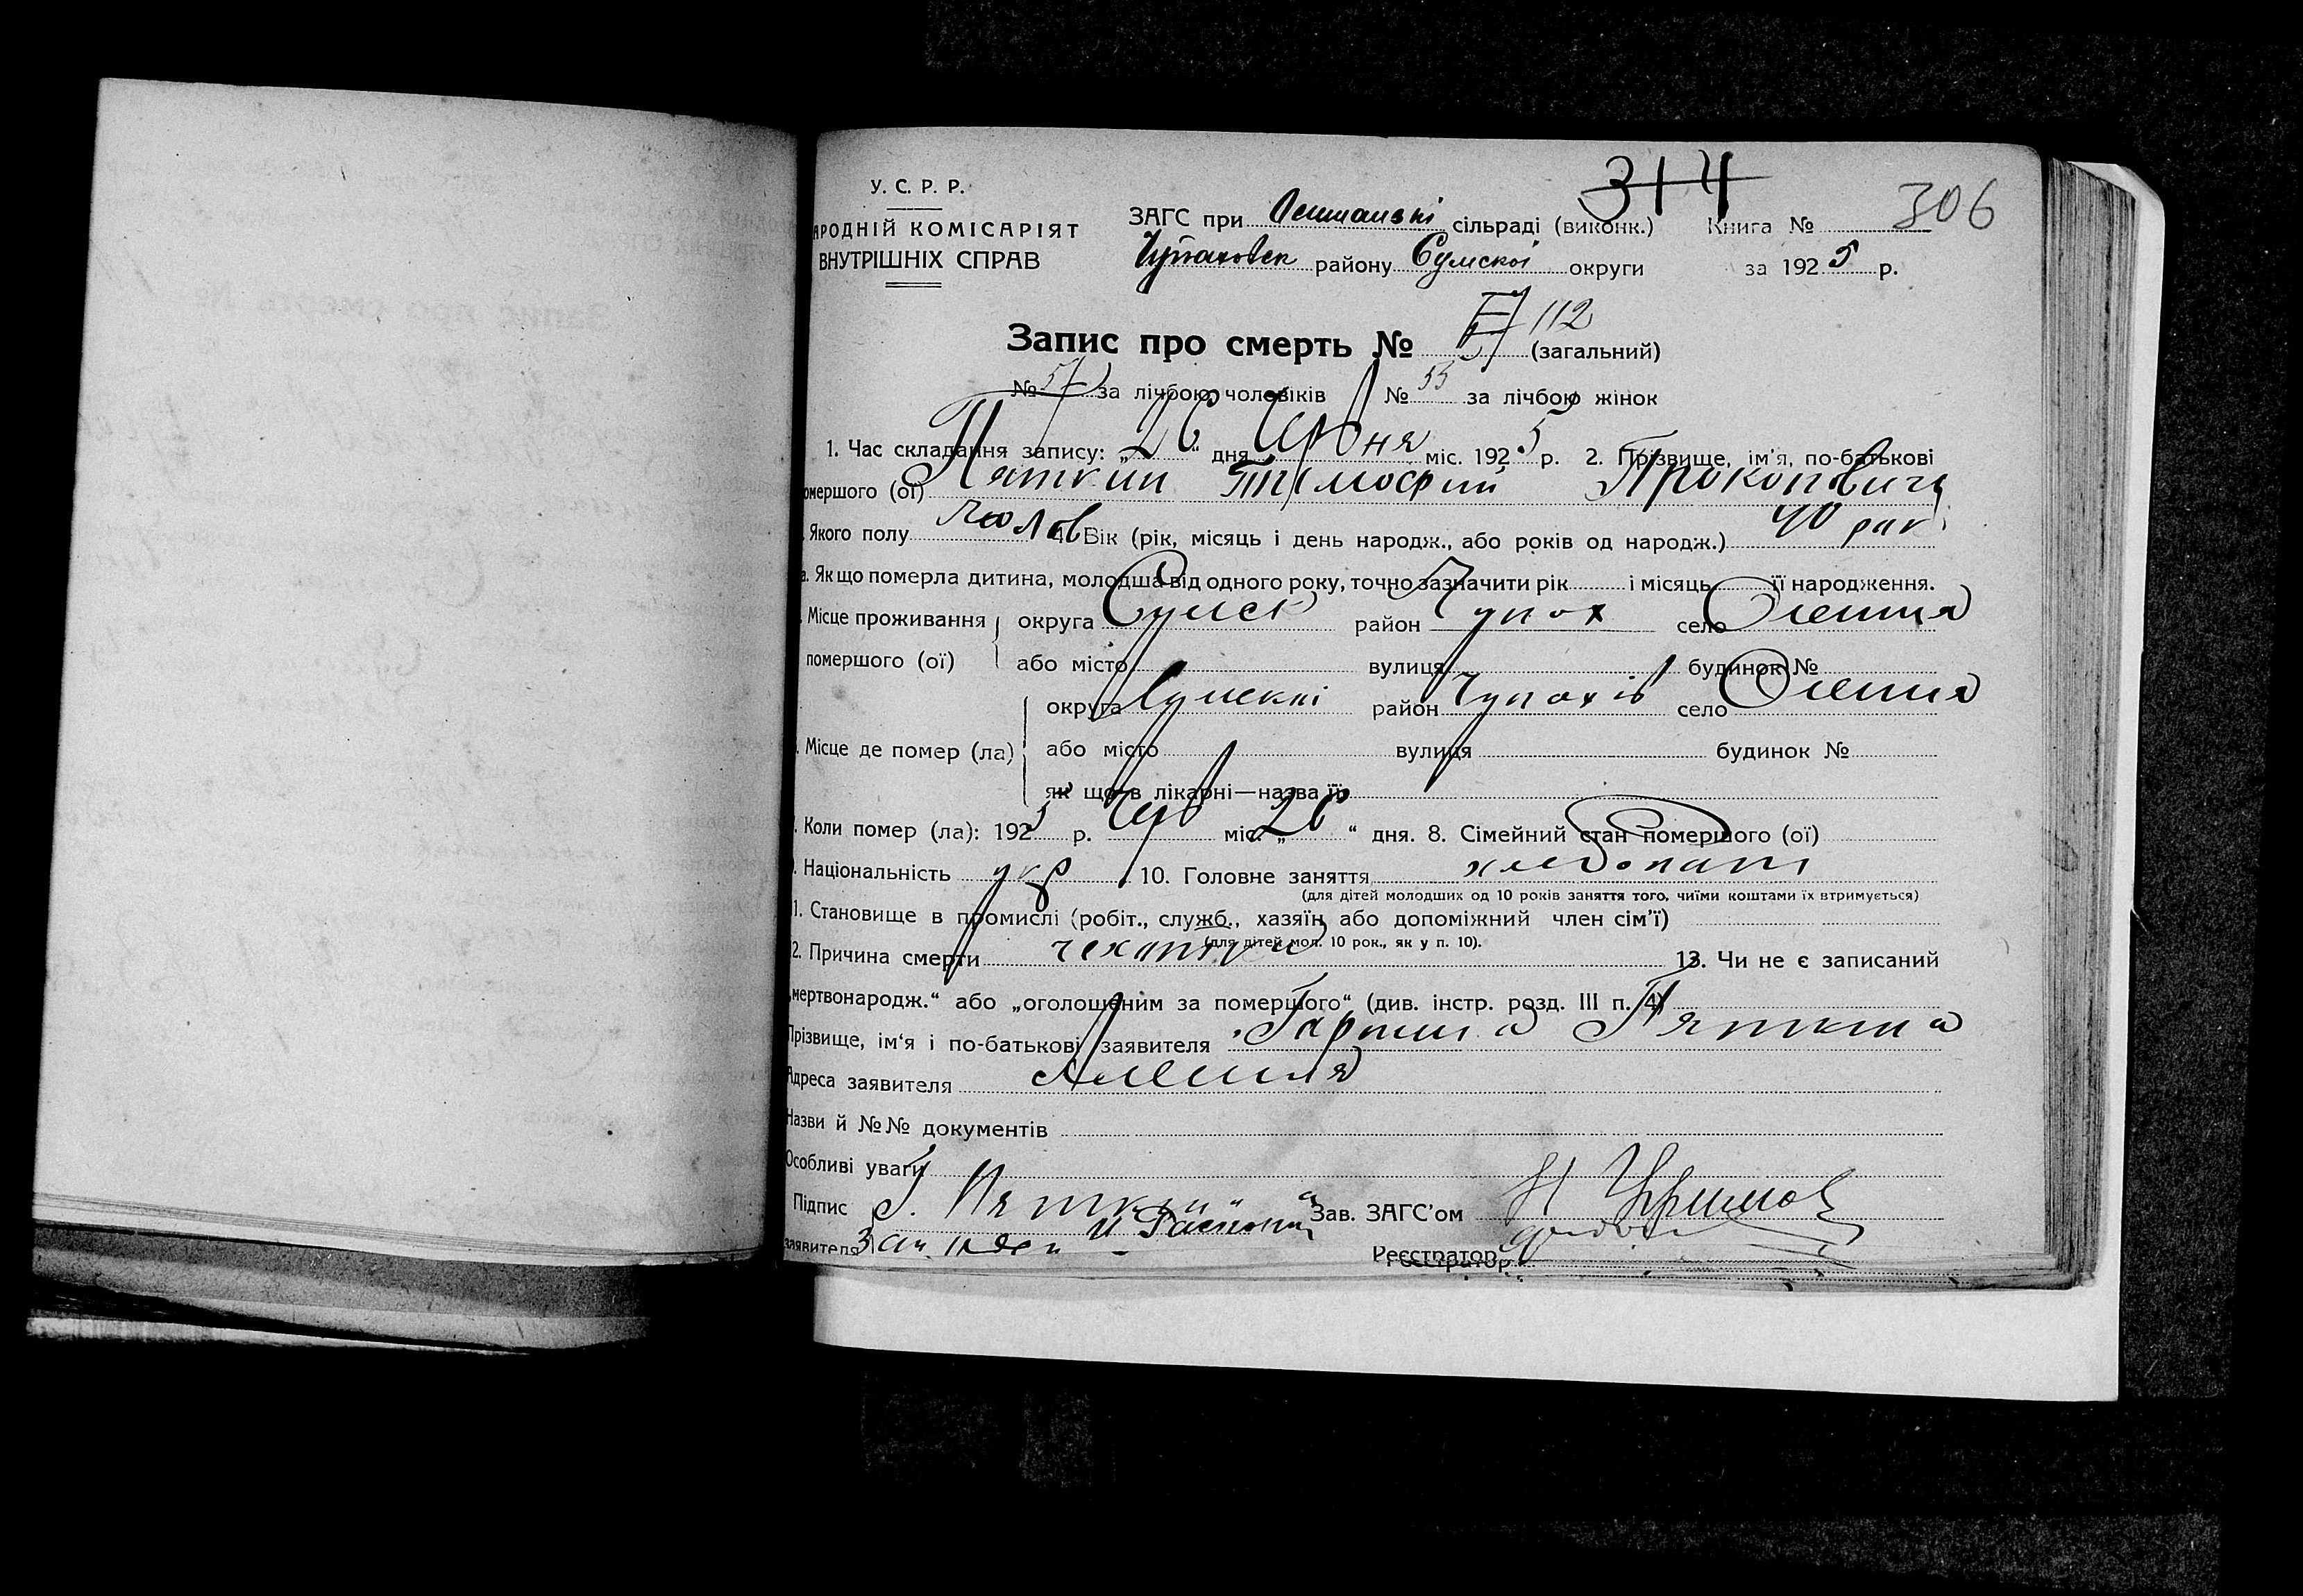 314
306
У. С. Р. Р.
АРОДНІЙ КОМІСАРІЯТ
ВНУТРІШНІХ СПРАВ
ЗАГС при сільраді (виконк.) Книга №
Чупаховск району Сумскої округи за 1925 р.
Запис про смерть № 112 (загальний)
№ 57 за лічбою чоловіків № 55 за лічбою жінок
1. Час складання запису: „26“ дня Июня міс. 1925 р. 2. Прізвище, ім'я, по-батькові
омершого (ої) Пяткин Тімофий Прокопович
Якого полу чолов 4. Вік (рік, місяць і день народж., або років од народж.) 40 рик
а. Якщо померла дитина, молодша від одного року, точно зазначити рік і місяць її народження.
Місце проживання округа Сумск район Чупах село Олешня
помершого (ої) або місто вулиця будинок №
округа Сумскі район Чупахів село Олешня
Місце де помер (ла) або місто вулиця будинок №
як що в лікарні—назва її
Коли помер (ла): 1925 р. Чер міс. „26“ дня. 8. Сімейний стан помершого (ої)
Національність укр 10. Головне заняття
(для дітей молодших од 10 років заняття того, чиїми коштами їх втримується)
1. Становище в промислі (робіт., служб., хазяїн, або допоміжний член сім'ї)
(для дітей мол. 10 рок., як у п. 10).
2. Причина смерти чехотка 13. Чи не є записаний
„мертвонародж.“ або „оголошеним за помершого“ (див. інстр. розд. III п. 4)
Прізвище, ім'я і по-батькові заявителя Пяткина
Адреса заявителя Алешня
Назви й №№ документів
Особливі уваги
Підпис Г. Пяткин Зав. ЗАГС'ом
заявителя
Реєстратор